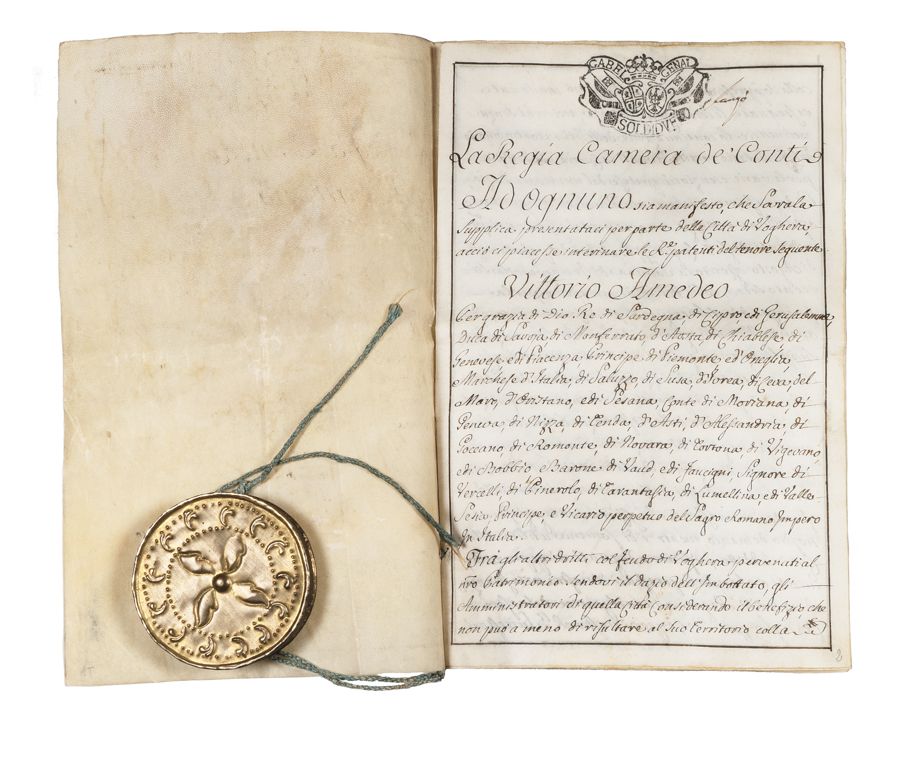 GABEL GENAL
SOLDI DVE
La Regia Camera de' Conti
Ad ognuno sia manifesto, che Sovra la
Supplica presentataci per parte della Città di Voghera,
acciò ci piacesse interinare le R.e patenti del tenore seguente
Vittorio Amedeo
Per grazia di Dio Re di Sardegna, di Cipro e di Gerusalemme,
Duca di Savoja, di Monferrato, d'Aosta, di Chiablese, di
Genevese e di Piacenza Principe di Piemonte, e d'Oneglia,
Marchese d'Italia, di Saluzzo, di Susa, d'Ivrea, di Ceva, del
Maro, d'Oristano, e di Sesana, Conte di Moriana, di
Geneva, di Nizza, di Tenda, d'Asti, d'Alessandria, di
Goceano, di Romonte, di Novara, di Tortona, di Vigevano,
e di Bobbio Barone di Vaud, e di Faucigni, Signore di
Vercelli, di Pinerolo, di Tarantasia, di Lumellina, e di Valle
Sesia, Principe, e Vicario perpetuo del Sagro Romano Impero
In Italia.
Frà gli altri dritti col feudo di Voghera pervenuti al
nro Patrimonio Sendovi il dazio dell'Imbottato, gli
Amministratori di quella Città considerando il benefizio che
non può a meno di risultare al suo territorio colla
2